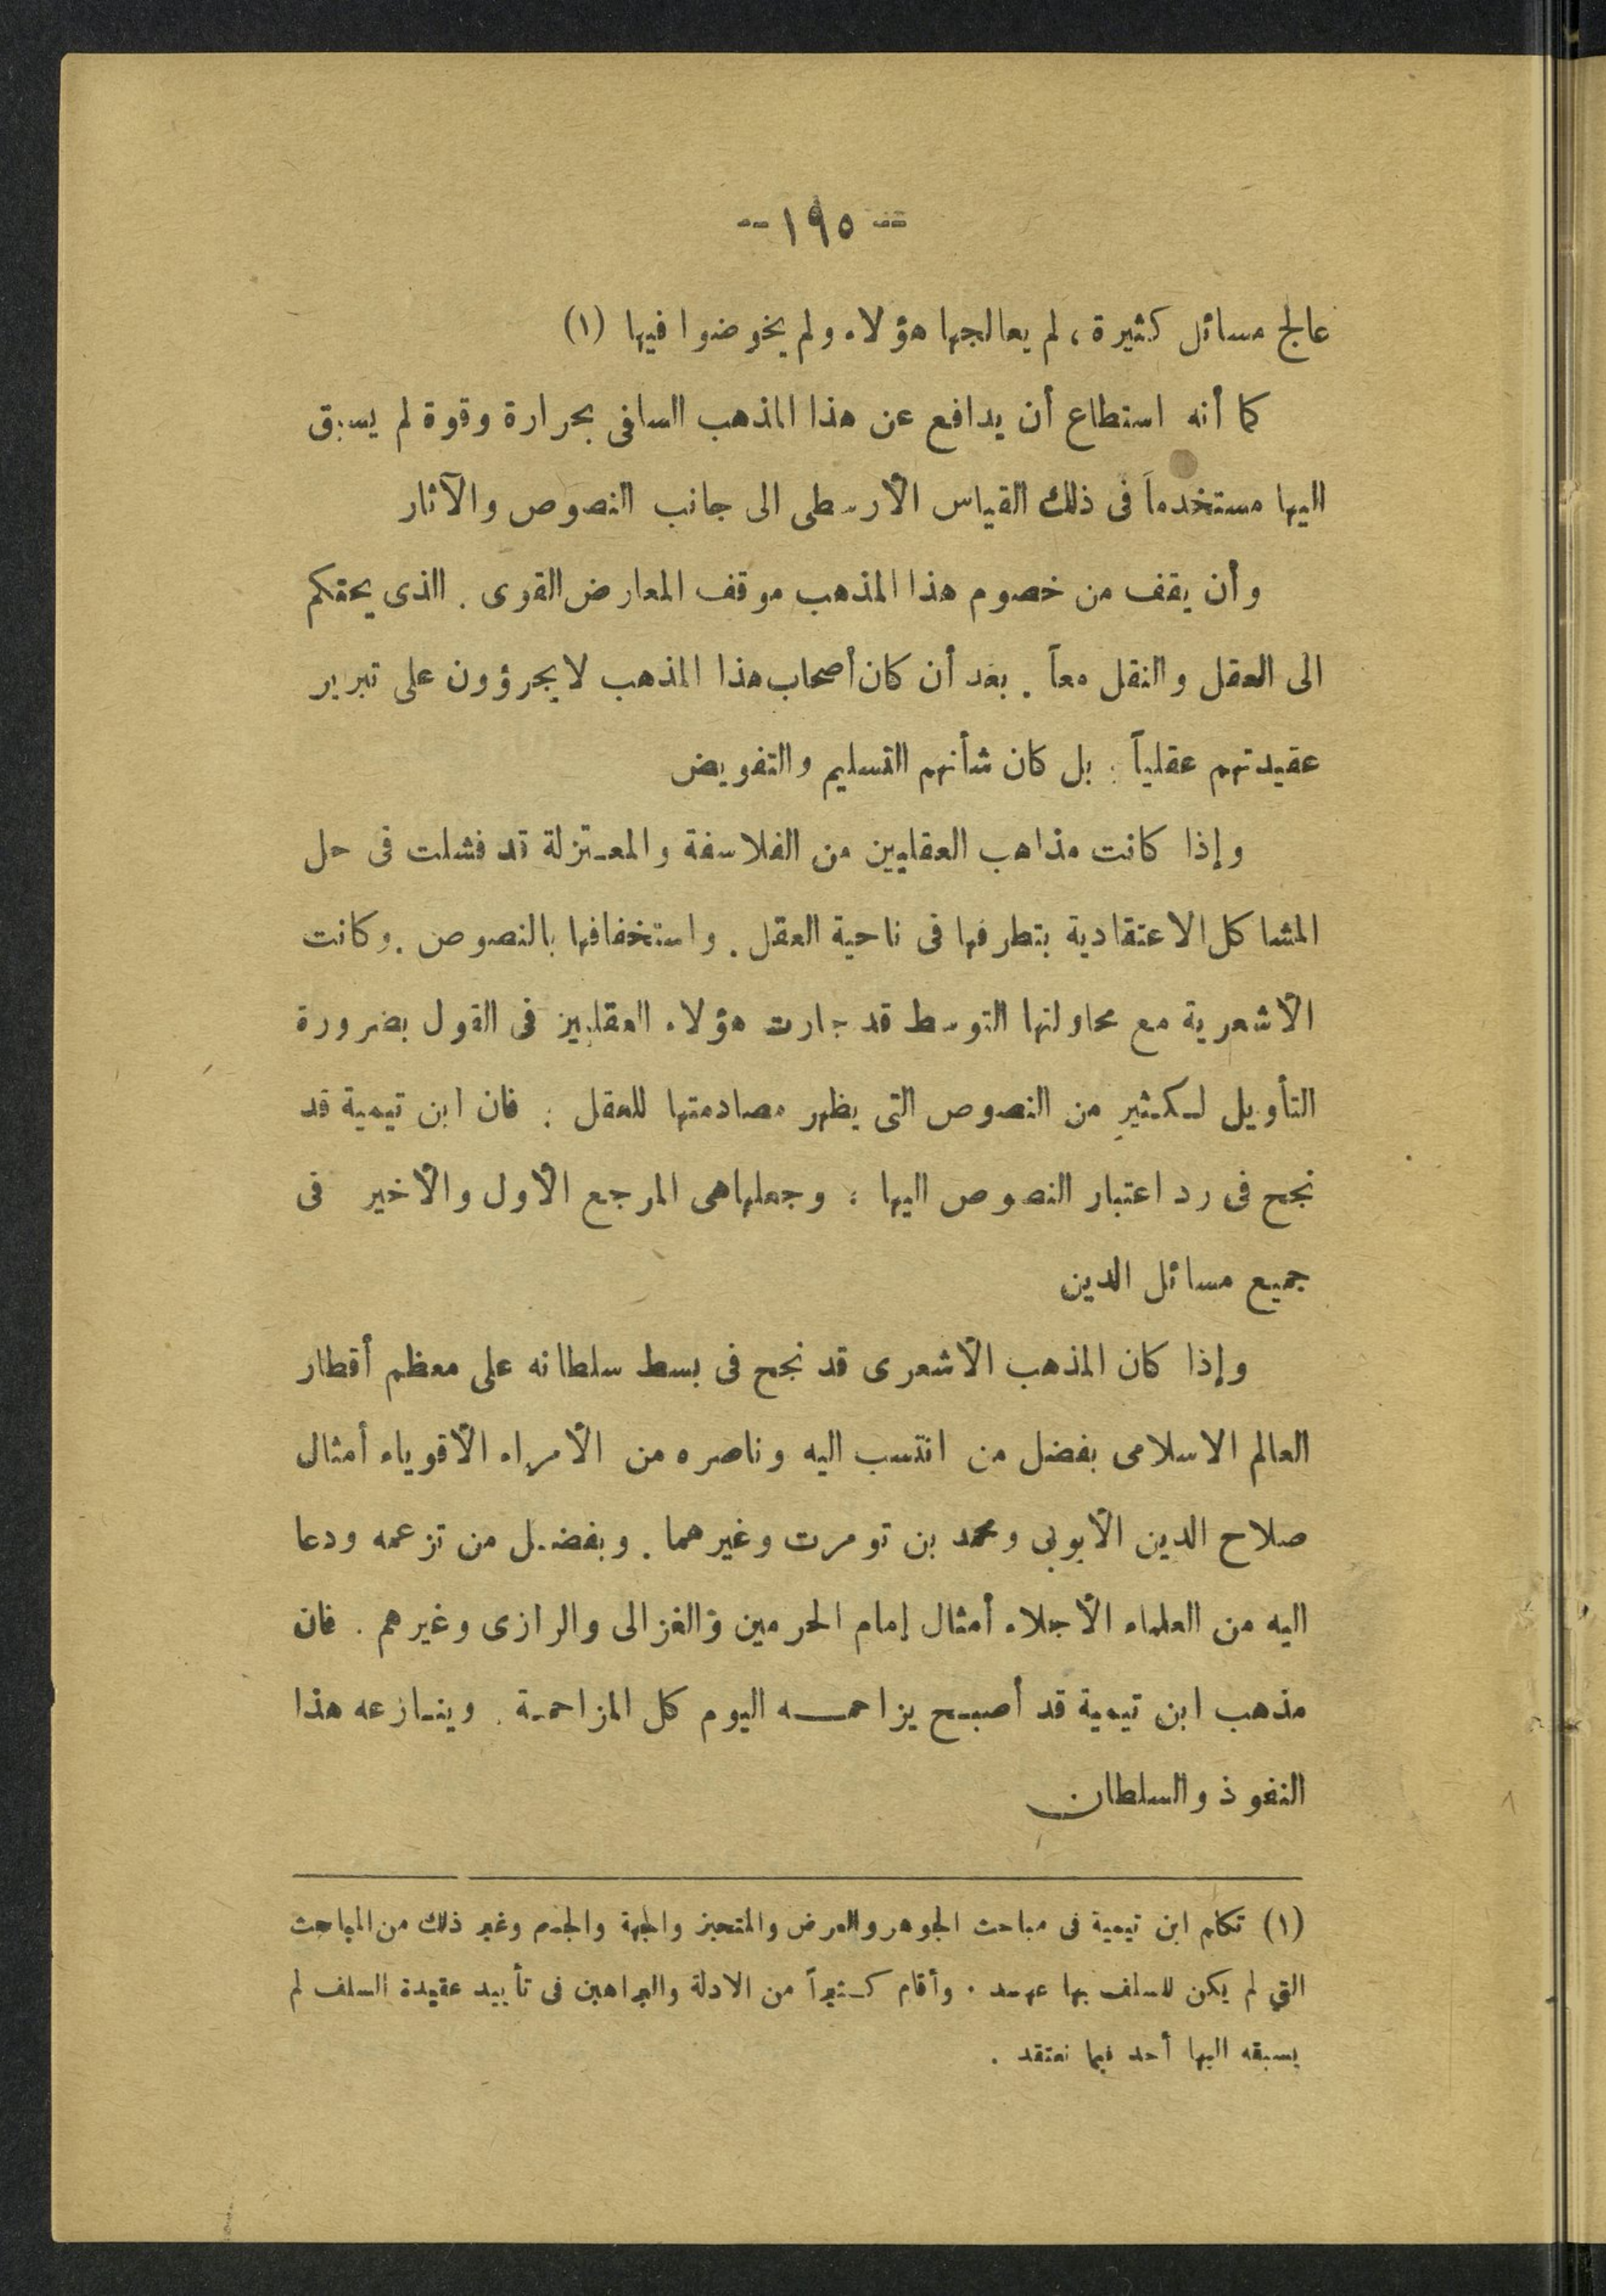 -- ١٩٥ --
عالج مسائل كثيرة ، لم يعالجها هؤلاء ولم يخوضوا فيها (١)
كما أنه استطاع أن يدافع عن هذا المذهب السلفى بحرارة وقوة لم يسبق
اليها مستخدماً فى ذلك القياس الأرسطى الى جانب النصوص والآثار
وأن يقف من خصوم هذا المذهب موقف المعارض القوى . الذى يحتكم
الى العقل والنقل معاً . بعد أن كان أصحاب هذا المذهب لا يجرؤون على تبرير
عقيدتهم عقلياً : بل كان شأنهم التسليم والتفويض
وإذا كانت مذاهب العقليين من الفلاسفة والمعتزلة قد فشلت فى حل
المشاكل الاعتقادية بتطرفها فى ناحية العقل . واستخفافها بالنصوص . وكانت
الأشعرية مع محاولتها التوسط قد جارت هؤلاء العقليين فى القول بضرورة
التأويل لكثير من النصوص التى يظهر مصادمتها للعقل : فان ابن تيمية قد
نجح فى رد اعتبار النصوص اليها : وجعلها هى المرجع الأول والأخير فى
جميع مسائل الدين
وإذا كان المذهب الأشعرى قد نجح فى بسط سلطانه على معظم أقطار
العالم الاسلامى بفضل من انتسب اليه وناصره من الأمراء الأقوياء أمثال
صلاح الدين الأيوبى ومحمد بن تومرت وغيرهما . وبفضل من تزعمه ودعا
اليه من العلماء الأجلاء أمثال إمام الحرمين والغزالى والرازى وغيرهم . فان
مذهب ابن تيمية قد أصبح يزاحمه اليوم كل المزاحمة . وينازعه هذا
النفوذ والسلطان
(١) تكلم ابن تيمية فى مباحث الجوهر والعرض والمتحيز والجهة والجسم وغير ذلك من المباحث
التي لم يكن للسلف بها عهد . وأقام كثيراً من الادلة والبراهين فى تأييد عقيدة السلف لم
يسبقه اليها أحد فيما نعتقد .